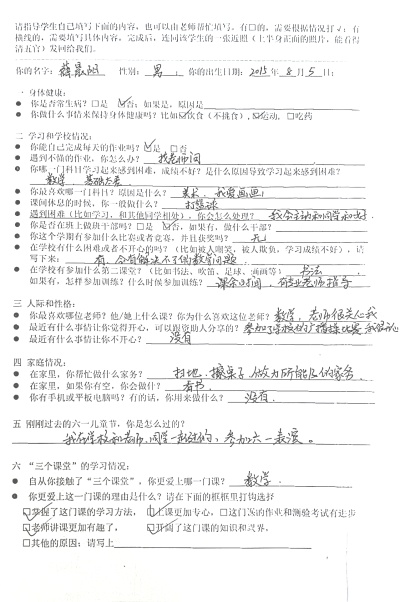 请指导学生自己填写下面的内容，也可以由老师帮忙填写。有□的，需要根据情况打√；有
横线的，需要填写具体内容。完成后，连同该学生的一张近照（上半身正面的照片，能看得
清五官）发回给我们。
你的名字： 性别：男；你的出生日期：2015年8月5日；
一 身体健康：
● 你是否常生病？□是 ☑否；如果是，原因是
● 你做什么事情来保持身体健康吗？比如☑饮食（不挑食），☑运动，□吃药
二 学习和学校情况：
● 你能自己完成每天的作业吗？☑是 □否
● 遇到不懂的作业，你怎么办？ 找老师问
● 你哪一门科目学习起来感到困难，成绩不好？是什么原因导致学习起来感到困难？
数学，基础太差
● 你最喜欢哪一门科目？原因是什么？ 美术，我爱画画
● 课间休息的时候，你一般做什么？ 打篮球
● 遇到困难（比如学习，和其他同学相处），你会怎么处理？ 我会主动和同学和好
● 你是否在班上做班干部吗？□是 ☑否，如果有，做什么干部？
● 你这个学期有参加什么比赛或者竞赛，并且获奖吗？ 无
● 在学校有什么困难或者不开心的吗？（比如被人嘲笑，被人欺负，学习成绩不好），请
写下来： 有，会有解决不了的数学问题
● 在学校有参加什么第二课堂？（比如书法、吹笛、足球、画画等） 书法
如果有，怎样参加训练？什么时候参加训练？ 课余时间，有专业老师指导
三 人际和性格：
● 你最喜欢哪位老师？他/她上什么课？你为什么喜欢这位老师？ 数学，老师很关心我
● 最近有什么事情让你觉得开心，可以跟资助人分享的？ 参加了学校的广播操比赛
● 最近有什么事情让你不开心？ 没有
四 家庭情况：
● 在家里，你帮忙做什么家务？ 扫地，擦桌子，做力所能及的家务
● 在家里，如果你有空，你会做什么？ 看书
● 你有手机或平板电脑吗？有的话，你用来做什么？ 没有
五 刚刚过去的六一儿童节，你是怎么过的？
我在学校和老师、同学一起过的，参加六一表演。
六 “三个课堂”的学习情况：
● 自从你接触了“三个课堂”，你更爱上哪一门课？ 数学
● 你更爱上这一门课的理由是什么？请在下面的框框里打钩选择
☑掌握了这门课的学习方法， ☑上课更加专心，□这门课的作业和测验考试有进步
☑老师讲课更加有趣了， ☑开阔了这门课的知识和视界，
□其他的原因：请写上